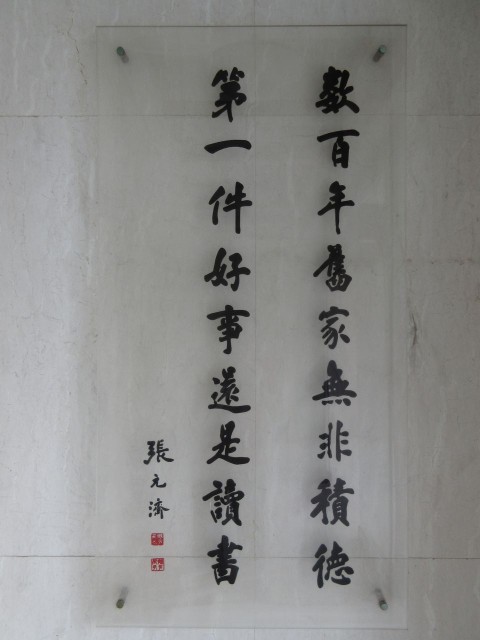 数百年舊家無非積德
第一件好事還是讀書
張元濟